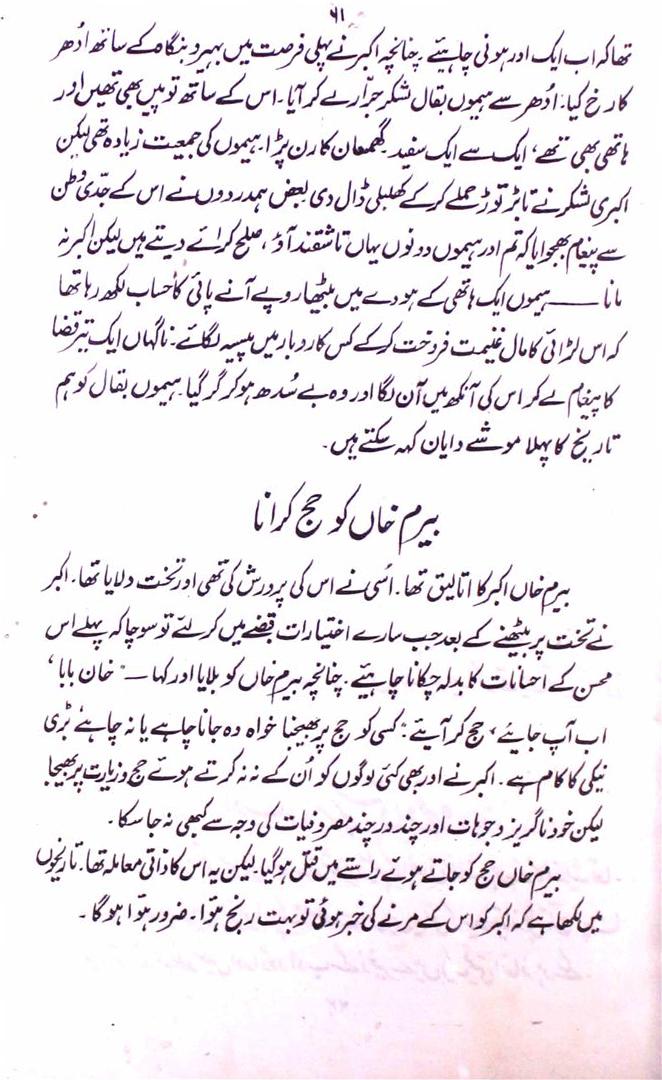 ۶۱
تھا کہ اب ایک اور ہونی چاہیئے۔ چنانچہ اکبر نے پہلی فرصت میں بہیر و بنگاہ کے ساتھ اُدھر
کا رخ کیا۔ اُدھر سے ہیموں بقال لشکر جرّار لے کر آیا۔ اس کے ساتھ توپیں بھی تھیں اور
ہاتھی بھی تھے، ایک سے ایک سفید۔ گھمسان کا رن پڑا۔ ہیموں کی جمعیت زیادہ تھی لیکن
اکبری لشکر نے تابڑ توڑ حملے کر کے کھلبلی ڈال دی بعض ہمدردوں نے اس کے جدّی وطن
سے پیغام بھجوایا کہ تم اور ہیموں دونوں یہاں تاشقند آؤ، صلح کرائے دیتے ہیں لیکن اکبر نہ
مانا —— ہیموں ایک ہاتھی کے ہودے میں بیٹھا روپے آنے پائی کا حساب لکھ رہا تھا
کہ اس لڑائی کا مال غنیمت فروخت کر کے کس کاروبار میں پیسہ لگائے۔ ناگہاں ایک تیر قضا
کا پیغام لے کر اس کی آنکھ میں آن لگا اور وہ بے سُدھ ہو کر گر گیا۔ ہیموں بقال کو ہم
تاریخ کا پہلا موشے دایان کہہ سکتے ہیں۔
بیرم خاں کو حج کرانا
بیرم خاں اکبر کا اتالیق تھا۔ اُسی نے اس کی پرورش کی تھی اور تخت دلایا تھا۔ اکبر
نے تخت پر بیٹھنے کے بعد جب سارے اختیارات قبضے میں کر لئے تو سوچا کہ پہلے اس
محسن کے احسانات کا بدلہ چکانا چاہیئے۔ چنانچہ بیرم خاں کو بلایا اور کہا — "خان بابا،
اب آپ جایئے، حج کر آیئے" کسی کو حج پر بھیجنا خواہ وہ جانا چاہے یا نہ چاہے بڑی
نیکی کا کام ہے۔ اکبر نے اور بھی کئی لوگوں کو اُن کے نہ نہ کرتے ہوئے حج و زیارت پر بھیجا
لیکن خود ناگریز وجوہات اور چند در چند مصروفیات کی وجہ سے کبھی نہ جا سکا۔
بیرم خاں حج کو جاتے ہوئے راستے میں قتل ہو گیا۔ لیکن یہ اس کا ذاتی معاملہ تھا۔ تاریخوں
میں لکھا ہے کہ اکبر کو اس کے مرنے کی خبر ہوئی تو بہت رنج ہوا۔ ضرور ہوا ہو گا۔